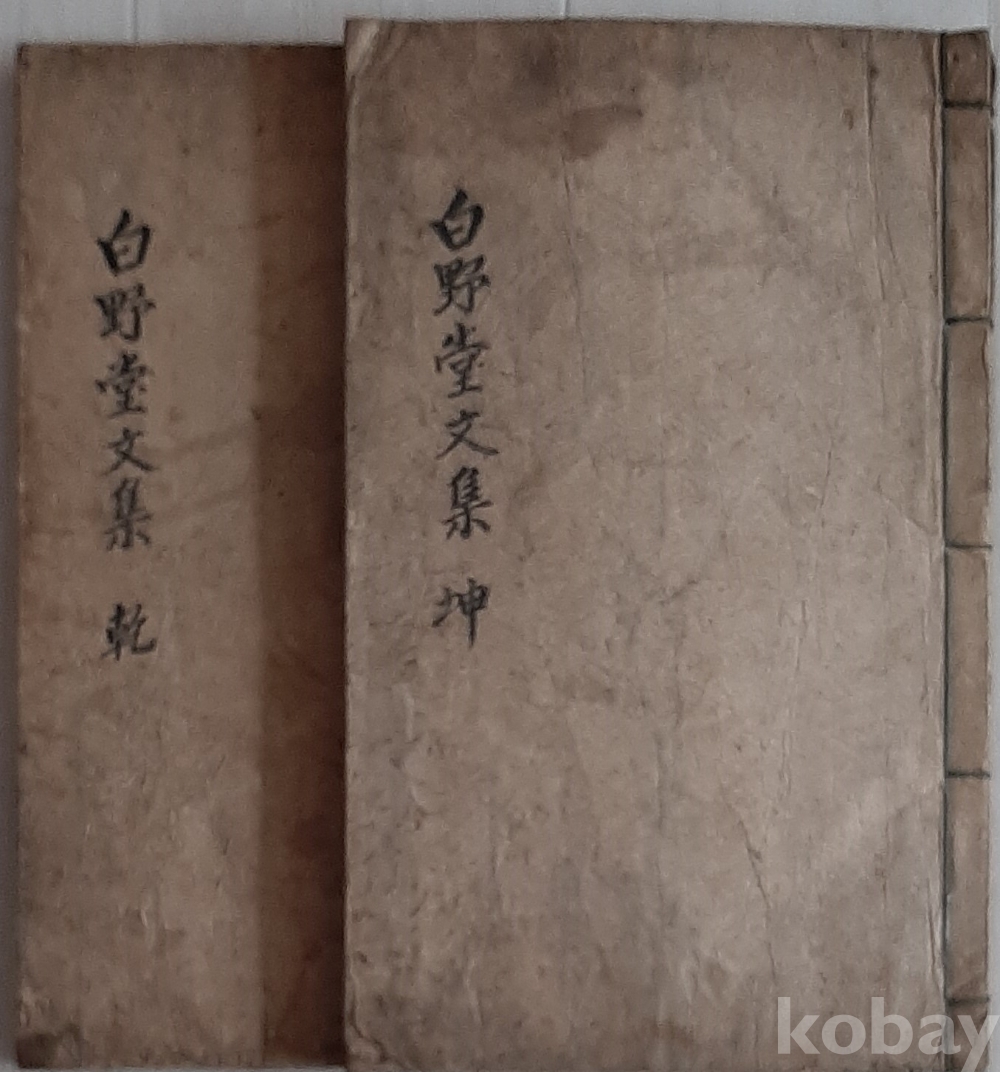 白野堂文集 乾
白野堂文集 坤
kobay